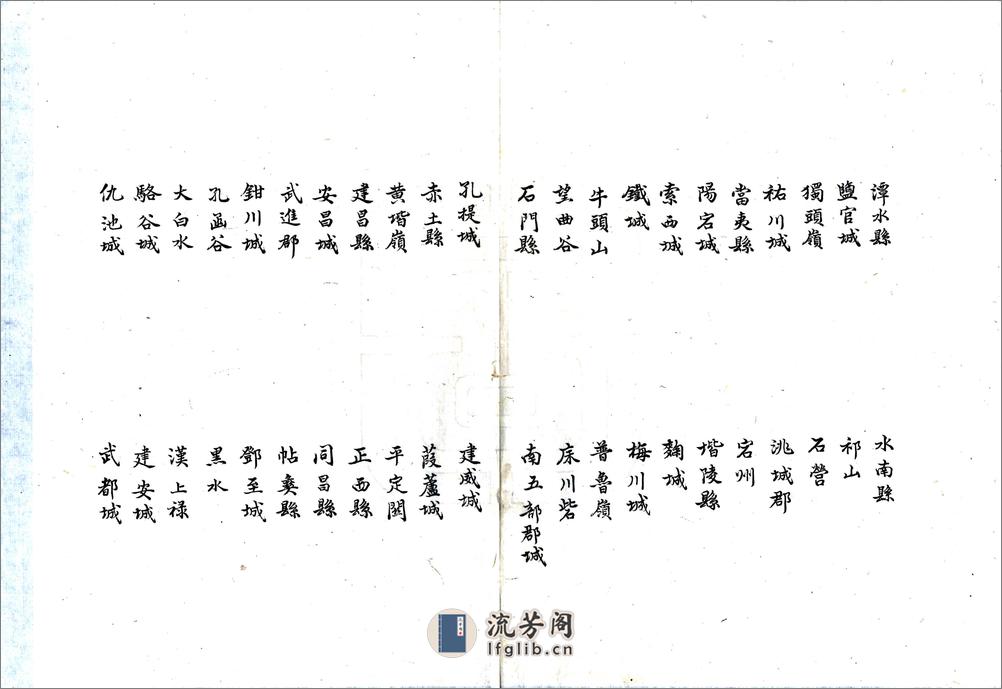 潭水縣 水南縣
鹽官城 祁山
獨頭嶺 石營
祐川城 洮城郡
當夷縣 宕州
陽宕城 堦陵縣
索西城 麴城
鐵城 梅川城
牛頭山 普魯嶺
望曲谷 床川砦
石門縣 南五部郡城
孔提城 建威城
赤土縣 葭蘆城
黄堦嶺 平定關
建昌縣 正西縣
安昌城 同昌縣
武進郡 帖夷縣
鉗川城 鄧至城
孔函谷 黑水
大白水 漢上禄
駱谷城 建安城
仇池城 武都城
流芳阁
lfglib.cn